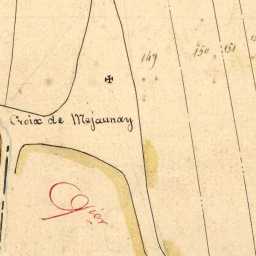 149
150
151
Croix de Mejaunay
Gier